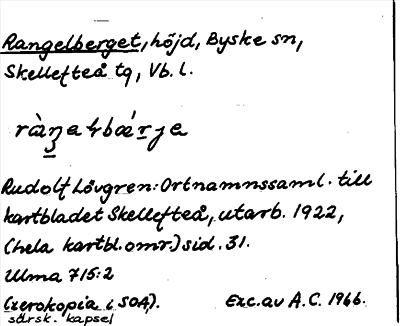 Rangelberget, höjd, Byske sn,
Skellefteå tg, Vb. l.
Rudolf Lövgren: Ortnamnssaml. till
kartbladet Skellefteå, utarb. 1922,
(hela kartbl.omr.) sid. 31.
Ulma 715:2
(xerokopia i SOA,). Exc. av A.C. 1966.
särsk. kapsel